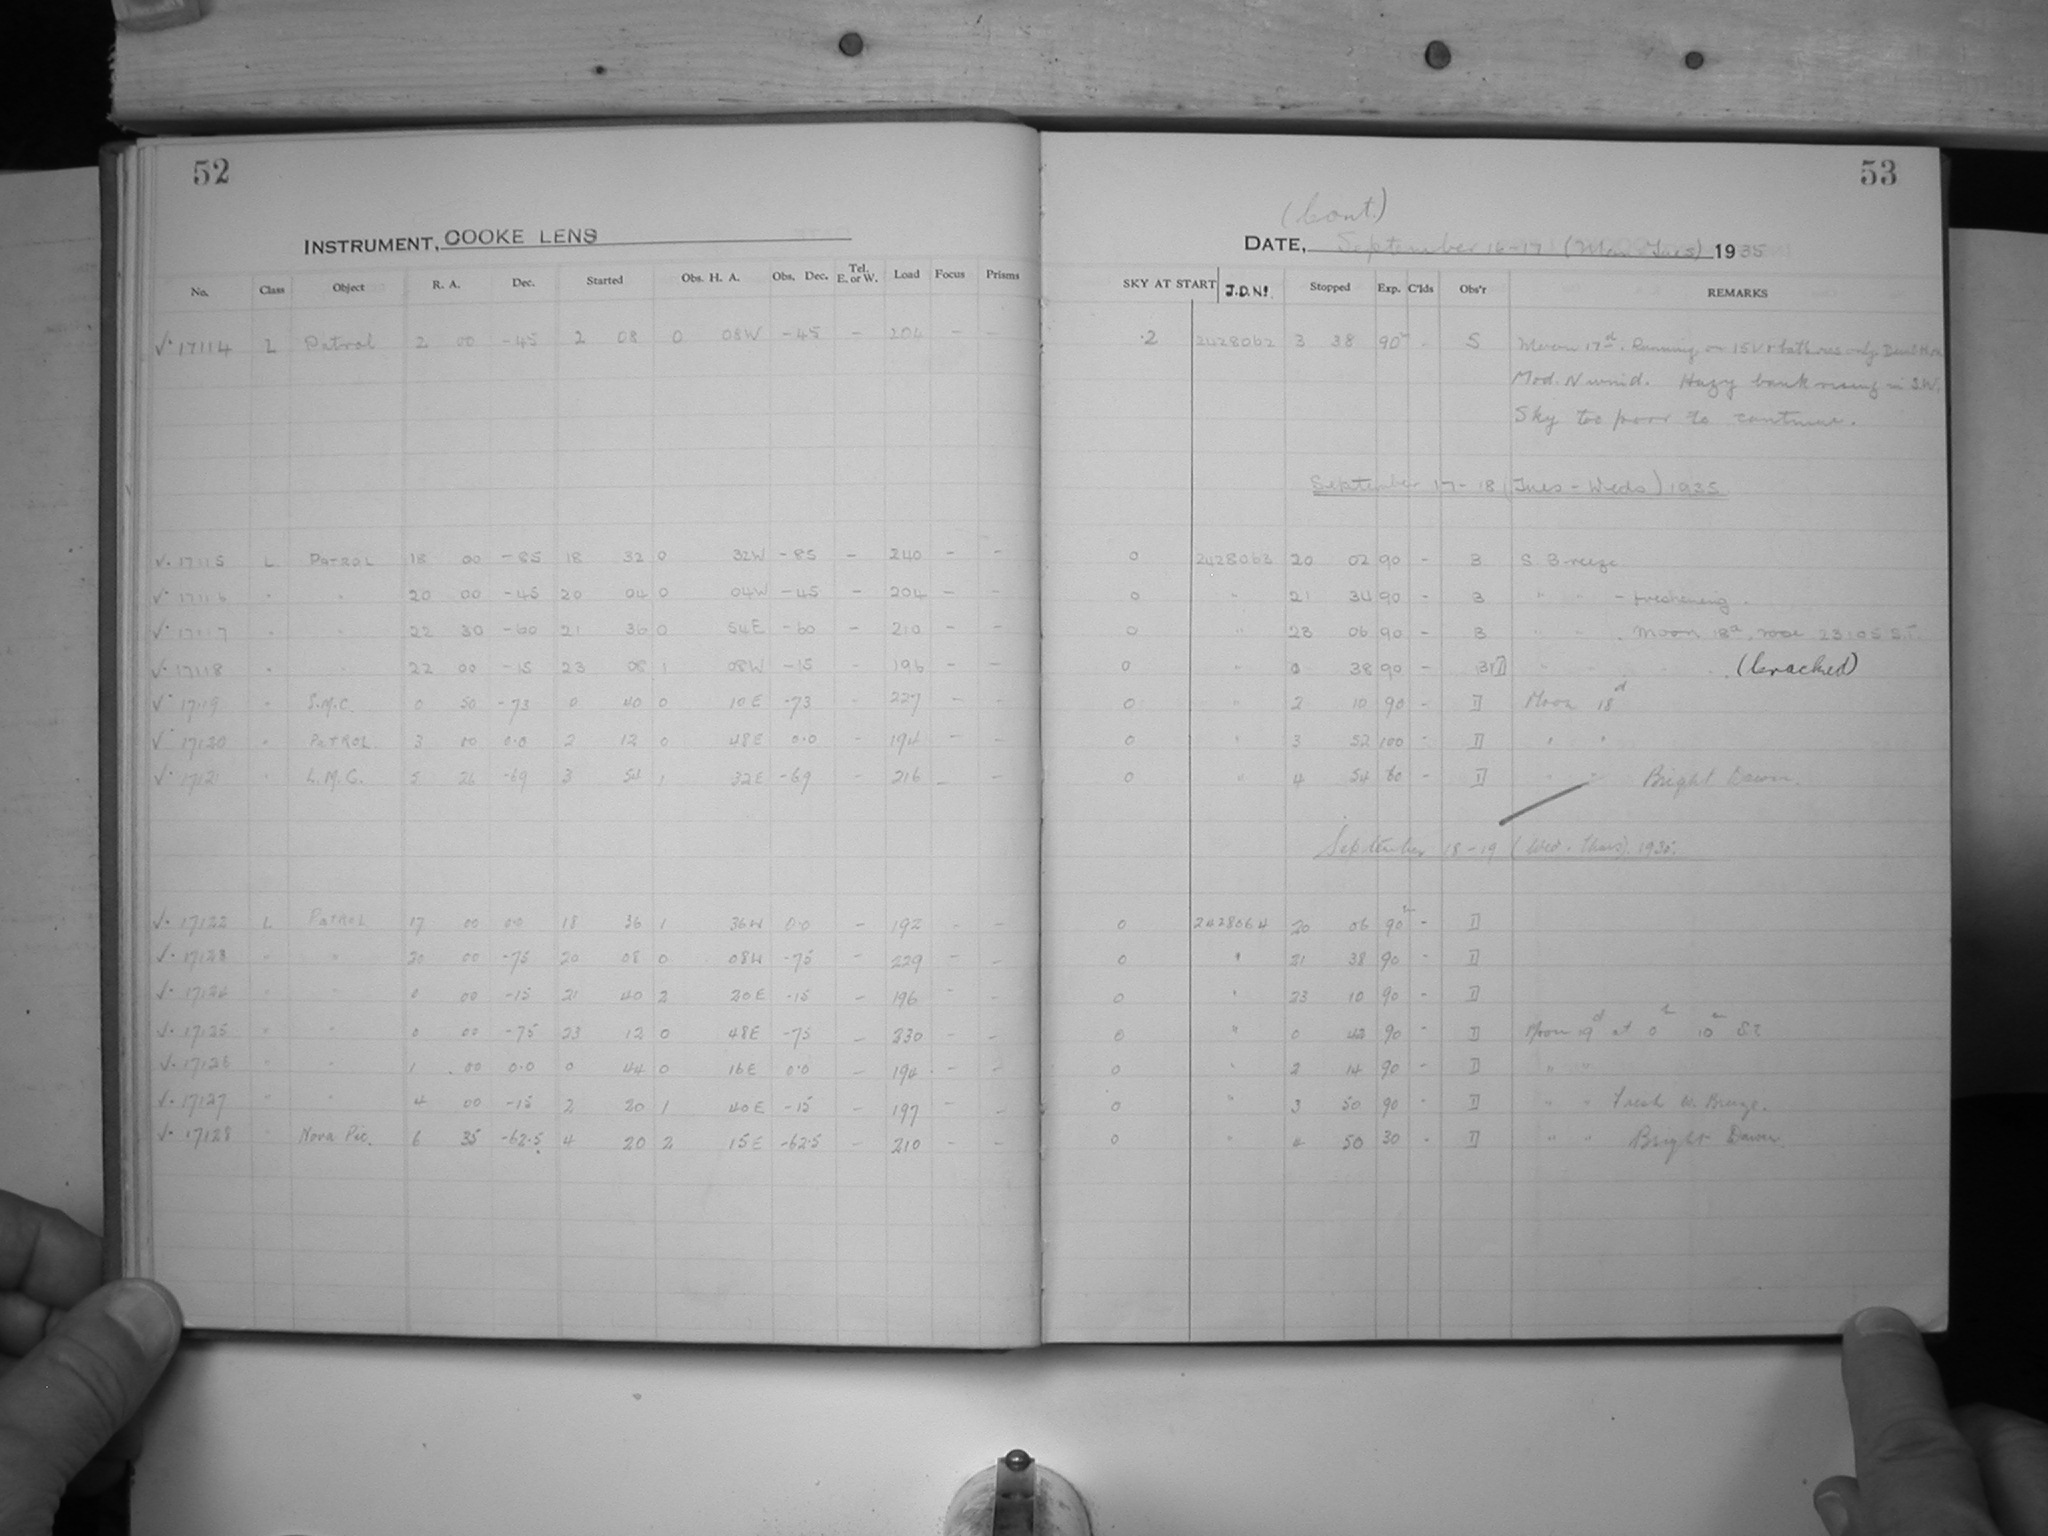 52
INSTRUMENT, COOKE LENS
No. Class Object R. A. Dec. Started Obs. H. A. Obs. Dec. Tel. E. or W. Load Focus Prisms
√· 17114 L Patrol 2 00 -45 2 08 0 08W -45 - 204 - -
√· 17115 L PATROL 18 00 -85 18 32 0 32W -85 - 240 - -
√· 17116 " " 20 00 -45 20 04 0 04W -45 - 204 - -
√· 17117 " " 22 30 -60 21 36 0 54E -60 - 210 - -
√· 17118 " " 22 00 -15 23 08 1 08W -15 - 196 - -
√· 17119 " S.M.C. 0 50 -73 0 40 0 10E -73 - 227 - -
√· 17120 " PATROL 3 00 0.0 2 12 0 48E 0.0 - 194 - -
√· 17121 " L.M.C. 5 26 -69 3 54 1 32E -69 - 216 - -
√· 17122 L PATROL 17 00 0.0 18 36 1 36W 0.0 - 192 - -
√· 17123 " " 20 00 -75 20 08 0 08W -75 - 229 - -
√· 17124 " " 0 00 -15 21 40 2 20E -15 - 196 - -
√· 17125 " " 0 00 -75 23 12 0 48E -75 - 230 - -
√· 17126 " " 1 00 0.0 0 44 0 16E 0.0 - 194 - -
√· 17127 " " 4 00 -15 2 20 1 40E -15 - 197 - -
√· 17128 " Nova Pic. 6 35 -62.5 4 20 2 15E -62.5 - 210 - -
53
(Cont.)
DATE, September 16-17 (Mon-Tues) 1935
SKY AT START J.D.N! Stopped Exp. C'lds Obs'r REMARKS
.2 2428062 3 38 90m - S Moon 17d. Running on 15V battries only.
Mod. N wind. Hazy bank rising in S.W.
Sky too poor to continue.
September 17-18 (Tues-Weds) 1935
0 2428063 20 02 90 - B S Breeze
0 " 21 34 90 - B " " - freshening.
0 " 23 06 90 - B " " . Moon 18d, rose 23:05 S.T.
0 " 0 38 90 - " " " " (Cracked)
0 " 2 10 90 - D Moon 18d
0 " 3 52 100 - D " "
0 " 4 54 60 - D " " Bright Dawn.
September 18-19 (Wed. Thurs). 1935.
0 2428064 20 06 90m - D
0 " 21 38 90 - D
0 " 23 10 90 - D
0 " 0 42 90 - D Moon 19d at 0h 10m S.T.
0 " 2 14 90 - D " "
0 " 3 50 90 - D " " Fresh W. Breeze.
0 " 4 50 30 - D " " Bright Dawn.